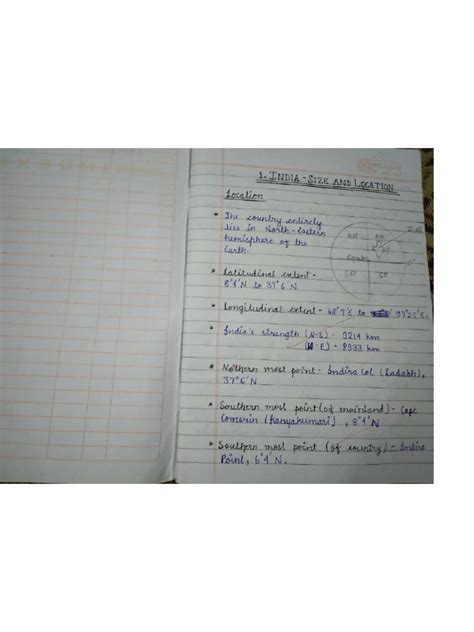 1. INDIA - SIZE AND LOCATION
Location
* The country entirely
lies in North-Eastern
hemisphere of the
Earth.
* Latitudinal extent -
8°4'N to 37°6'N
* Longitudinal extent - 68°7'E to 97°25'E.
* India's strength (N-S) - 3214 km
- 2933 km
* Northern most point - Indira Col (Ladakh),
37°6'N
* Southern most point (of mainland) - Cape
Comorin (Kanyakumari), 8°4'N
* Southern most point (of country) - Indira
Point, 6°4'N.